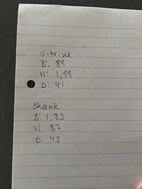 Vitrine:
B: 89
H: 1,99
D: 41
Skank:
B: 1,83
H: 87
D: 42